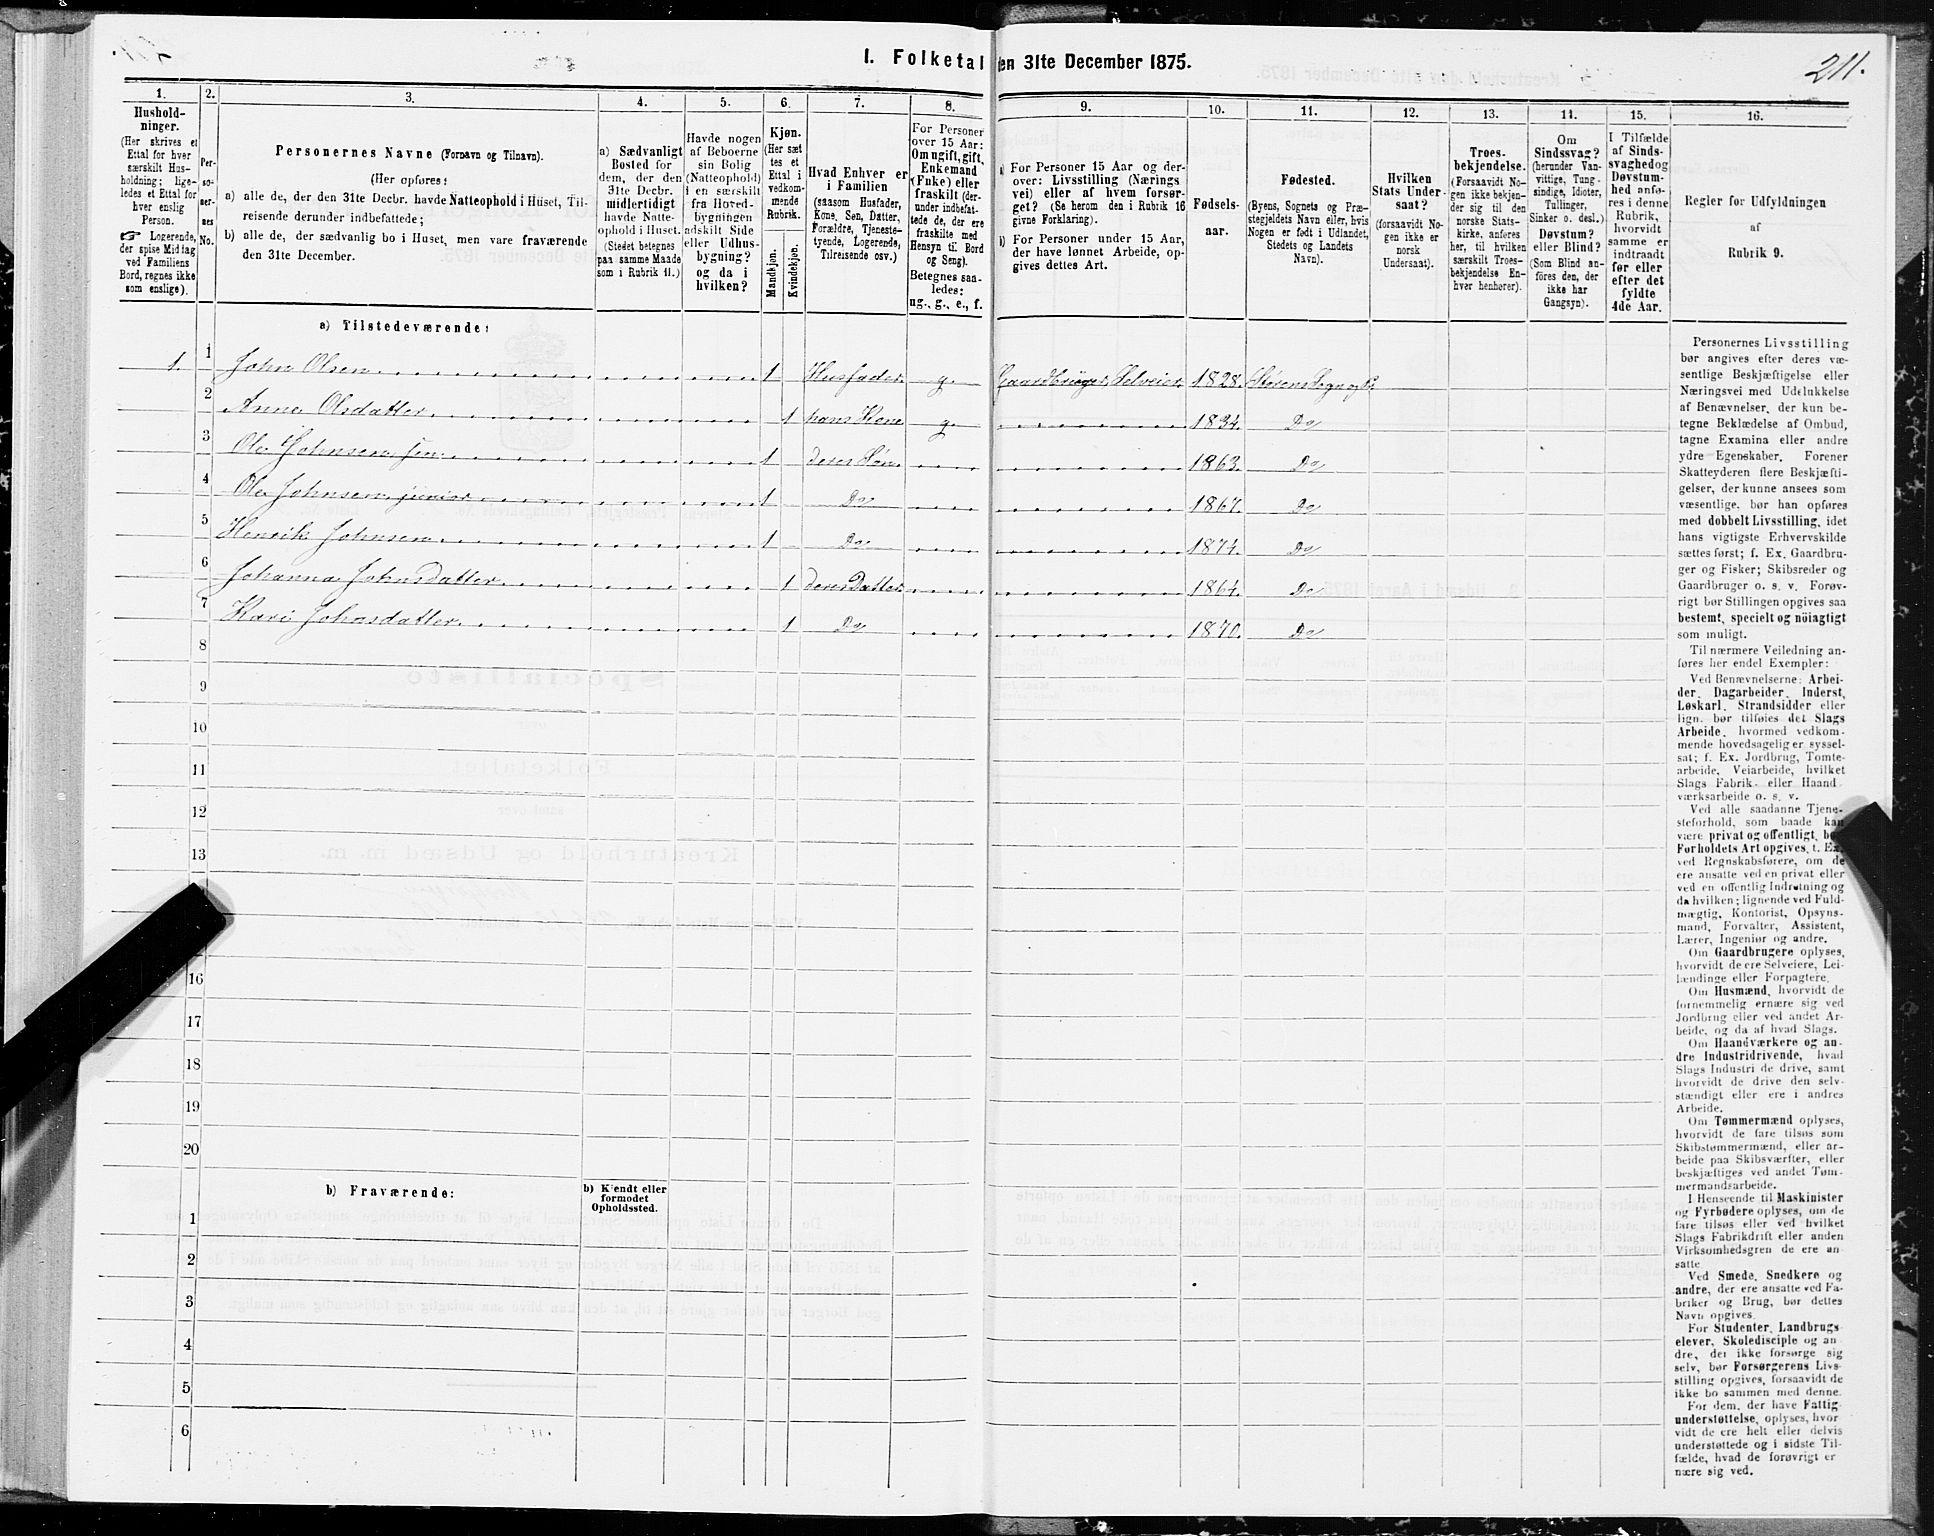 I. Folketal den 31te December 1875.
211.
1.
Hushold-
ninger.
(Her skrives et
Ettal for hver
særskilt Hus-
holdning; lige-
ledes et Ettal for
hver enslig
Person.
☞ Logerende,
der spise Middag
ved Familiens
Bord, regnes ikke
som enslige).
2.
Per-
so-
ner-
nes
No.
3.
Personernes Navne (Fornavn og Tilnavn).
(Her opføres:
a) alle de, der den 31te Decbr. havde Natteophold i Huset, Til-
reisende derunder indbefattede;
b) alle de, der sædvanlig bo i Huset, men vare fraværende
den 31te December.
4.
a) Sædvanligt
Bosted for
dem, der den
31te Decbr.
midlertidigt
havde Natte-
ophold i Huset.
(Stedet betegnes
paa samme Maade
som i Rubrik 11.)
5.
Havde nogen
af Beboerne
sin Bolig
(Natteophold)
i en særskilt
fra Hoved-
bygningen
adskilt Side
eller Udhus-
bygning?
og da i
hvilken?
6.
Kjøn.
(Her sæt
tes et
Ettal i
vedkom-
mende
Rubrik.
Mandkjøn.
Kvindekjøn.
7.
Hvad Enhver er
i Familien
(saasom Husfader,
Kone, Søn, Datter,
Forældre, Tjeneste-
tyende, Logerende,
Tilreisende osv.)
8.
For Personer
over 15 Aar:
Om ugift, gift,
Enkemand
(Enke) eller
fraskilt (der-
under indbefat-
tede de, der ere
fraskilte med
Hensyn til Bord
og Seng).
Betegnes saa-
ledes:
ug., g., e., f.
9.
a) For Personer 15 Aar og der-
over: Livsstilling (Nærings
vei) eller af hvem forsør-
get? (Se herom den i Rubrik 16
givne Forklaring).
b) For Personer under 15 Aar,
der have lønnet Arbeide, op-
gives dettes Art.
10.
Fødsels-
aar.
11.
Fødested.
(Byens, Sognets og Præ-
stegjeldets Navn eller, hvis
Nogen er født i Udlandet,
Stedets og Landets
Navn).
12.
Hvilken
Stats Under-
saat?
(forsaavidt No-
gen ikke er
norsk
Undersaat).
13.
Troes-
bekjendelse.
(Forsaavidt No-
gen ikke bekjen-
der sig til den
norske Stats-
kirke, anføres
her, til hvilken
særskilt Troes-
bekjendelse En-
hver henhører).
14.
Om
Sindssvag?
(herunder Van-
vittige, Tung-
sindige, Idioter,
Tullinger,
Sinker o. desl.)
Døvstum?
eller Blind?
(Som Blind an-
føres den, der
ikke har
Gangsyn).
15.
I Tilfælde
af Sinds-
svaghed og
Døvstum-
hed anfø-
res i denne
Rubrik,
hvorvidt
samme er
indtraadt
før eller
efter det
fyldte
4de Aar.
16.
Regler for Udfyldningen
af
Rubrik 9.
a) Tilstedeværende:
1. 1 John Olsen 1 Husfader g. Gaardbruger Selveier 1828. Størens Sogn og P.
2 Anne Olsdatter 1 hans Kone g. 1834. Do
3 Ole Johnsen sen. 1 deres Søn 1863. Do
4 Ole Johnsen junior 1 Do 1867. Do
5 Henrik Johnsen 1 Do 1874. Do
6 Johanna Johnsdatter 1 deres Datter 1864. Do
7 Kari Johnsdatter 1 Do 1870. Do
8
9
10
11
12
13
16
17
18
19
20
b) Fraværende:
b) Kjendt eller
formodet
Opholdssted.
1
2
3
4
5
6
Personernes Livsstilling
bør angives efter deres væ-
sentlige Beskjæftigelse eller
Næringsvei med Udelukkelse
af Benævnelser, der kun be-
tegne Beklædelse af Ombud,
tagne Examina eller andre
ydre Egenskaber. Forener
Skatteyderen flere Beskjæfti-
gelser, der kunne ansees som
væsentlige, bør han opføres
med dobbelt Livsstilling, idet
hans vigtigste Erhvervskilde
sættes først; f. Ex. Gaardbru-
ger og Fisker; Skibsreder og
Gaardbruger o. s. v. Forøv-
rigt bør Stillingen opgives saa
bestemt, specielt og nöiagtigt
som muligt.
Til nærmere Veiledning an-
føres her endel Exempler:
Ved Benævnelserne: Arbei-
der, Dagarbeider, Inderst,
Løskarl, Strandsidder eller
lign. bør tilføies det Slags
Arbeide, hvormed vedkom-
mende hovedsagelig er syssel-
sat; f. Ex. Jordbrug, Tomte-
arbeide, Veiarbeide, hvilket
Slags Fabrik- eller Haand-
værksarbeide o. s. v.
Ved alle saadanne Tjene-
steforhold, som baade kan
være privat og offentligt, bør
Forholdets Art opgives, t. Ex.
ved Regnskabsførere, om de
ere ansatte ved en privat eller
ved en offentlig Indretning og
da hvilken; lignende ved Fuld-
mægtig, Kontorist, Opsyns-
mand, Forvalter, Assistent,
Lærer, Ingeniør og andre.
Om Gaardbrugere oplyses,
hvorvidt de ere Selveiere, Lei-
lændinge eller Forpagtere.
Om Husmænd, hvorvidt de
fornemmelig ernære sig ved
Jordbrug eller ved andet Ar-
beide, og da af hvad Slags.
Om Haandværkere og an-
dre Industridrivende, hvad
Slags Industri de drive, samt
hvorvidt de drive den selv-
stændigt eller ere i andres
Arbeide.
Om Tømmermænd oplyses,
hvorvidt de fare tilsøs som
Skibstømmermænd, eller ar-
beide paa Skibsværfter, eller
beskjæftiges ved andet Tøm-
mermandsarbeide.
I Henseende til Maskinister
og Fyrbødere oplyses, om de
fare tilsøs eller ved hvilket
Slags Fabrikdrift eller anden
Virksomhedsgren de ere an-
satte.
Ved Smede, Snedkere og
andre, der ere ansatte ved Fa-
briker og Brug, bør dettes
Navn opgives.
For Studenter, Landbrugs-
elever, Skoledisciple og an-
dre, der ikke forsørge sig
selv, bør Forsørgerens Livs-
stilling opgives, forsaavidt de
ikke bo sammen med denne.
For dem, der have Fattig-
understøttelse, oplyses, hvor-
vidt de ere helt eller delvis
understøttede og i sidste Til-
fælde, hvad de forøvrigt er
nære sig ved.